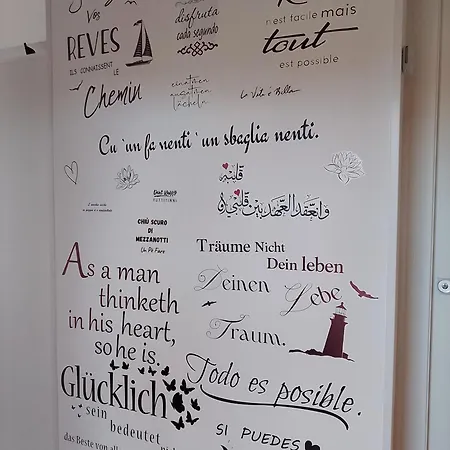 Vos
RÊVES
ILS CONNAISSENT
LE
Chemin
disfruta
cada segundo
Rien
n'est facile mais
tout
est possible
einatmen
ausatmen
lächeln
La Vita è Bella
Cu 'un fa nenti 'un sbaglia nenti.
قلبه
وانعقد العهد بين قلبي و
CHIÙ SCURO DI
MEZZANOTTI
Un Pò Fare
As a man
thinketh
in his heart,
so he is.
Träume Nicht
Dein leben
Deinen Lebe
Traum.
Glücklich
sein
bedeutet
das Beste von
Todo es posible.
SI PUEDES